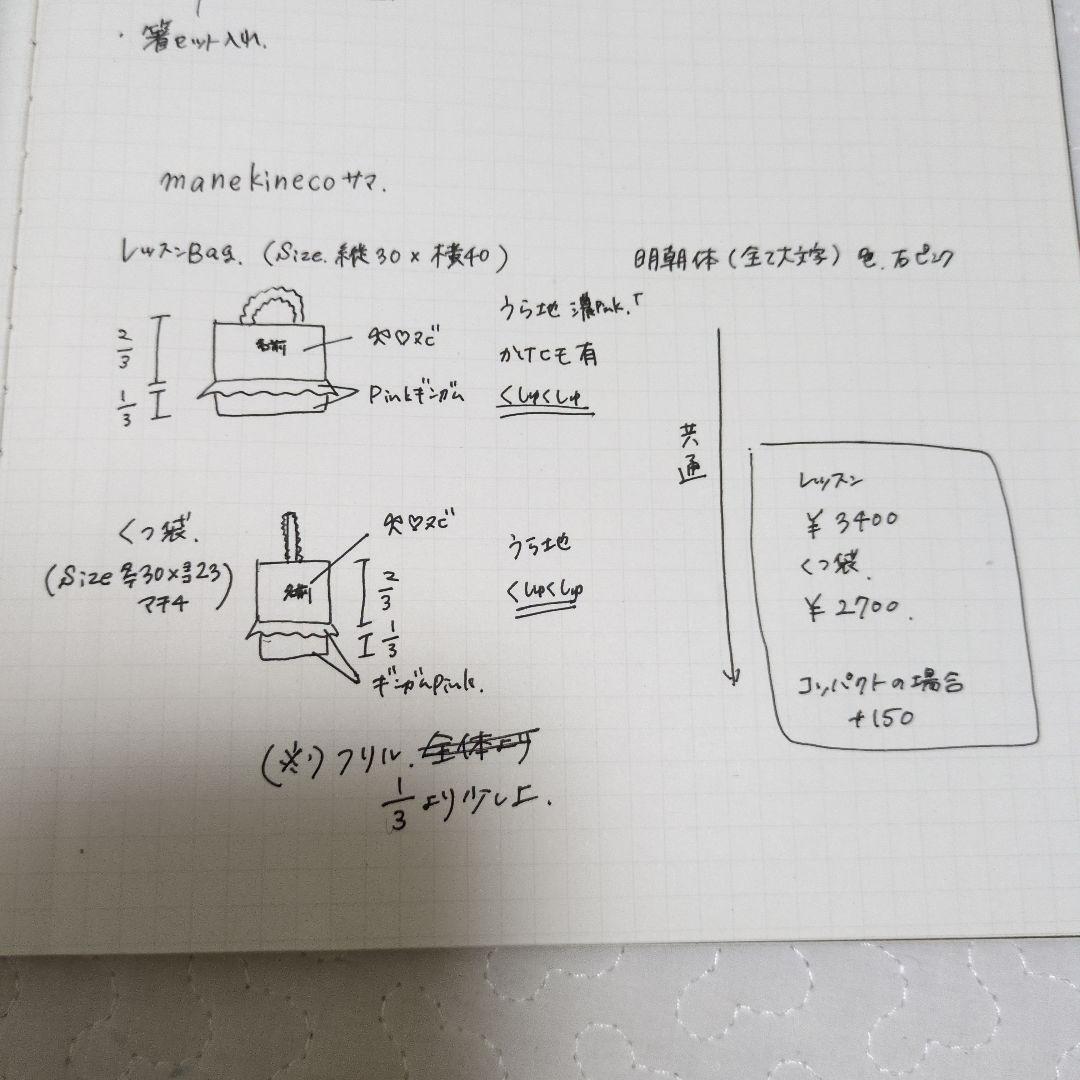 ・箸セット入れ.
manekinecoサマ.
レッスンBag. (Size. 縦30×横40)
明朝体(全て大文字) 色.右ピンク
2/3
1/3
名前
ヌビ
Pinkギンガム
うら地 濃Pink.
も有
くしゅくしゅ
くつ袋.
(Size 30×23)
マチ4
名前
ヌビ
2/3
1/3
ギンガムPink.
うら地
くしゅくしゅ
(※) フリル. 全体より
1/3より少し上.
共通
レッスン
¥3400
くつ袋.
¥2700.
コンパクトの場合
+150